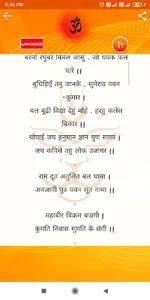 9:26 PM
ॐ
LANGUAGE
Tr
बरनी रघुबर बिमल जासु , जो धयक फल
चारे ||
बुधिहिएँ तनु जानके , सुमेराव पवन
"कुमार |
बल बूढी विद्या देहु मोहे , हरहु कलेस
बिकार ||
चोपाई जय हनुमान ज्ञान गुण सागर |
जय कपिसे तहु लोक उजागर ||
राम दूत अतुलित बल धामा |
अनजानी पुत्र पवन सूत नामा ||
महाबीर बिक्रम बज्रागी |
कुमति निवास सुमति के संगी ||